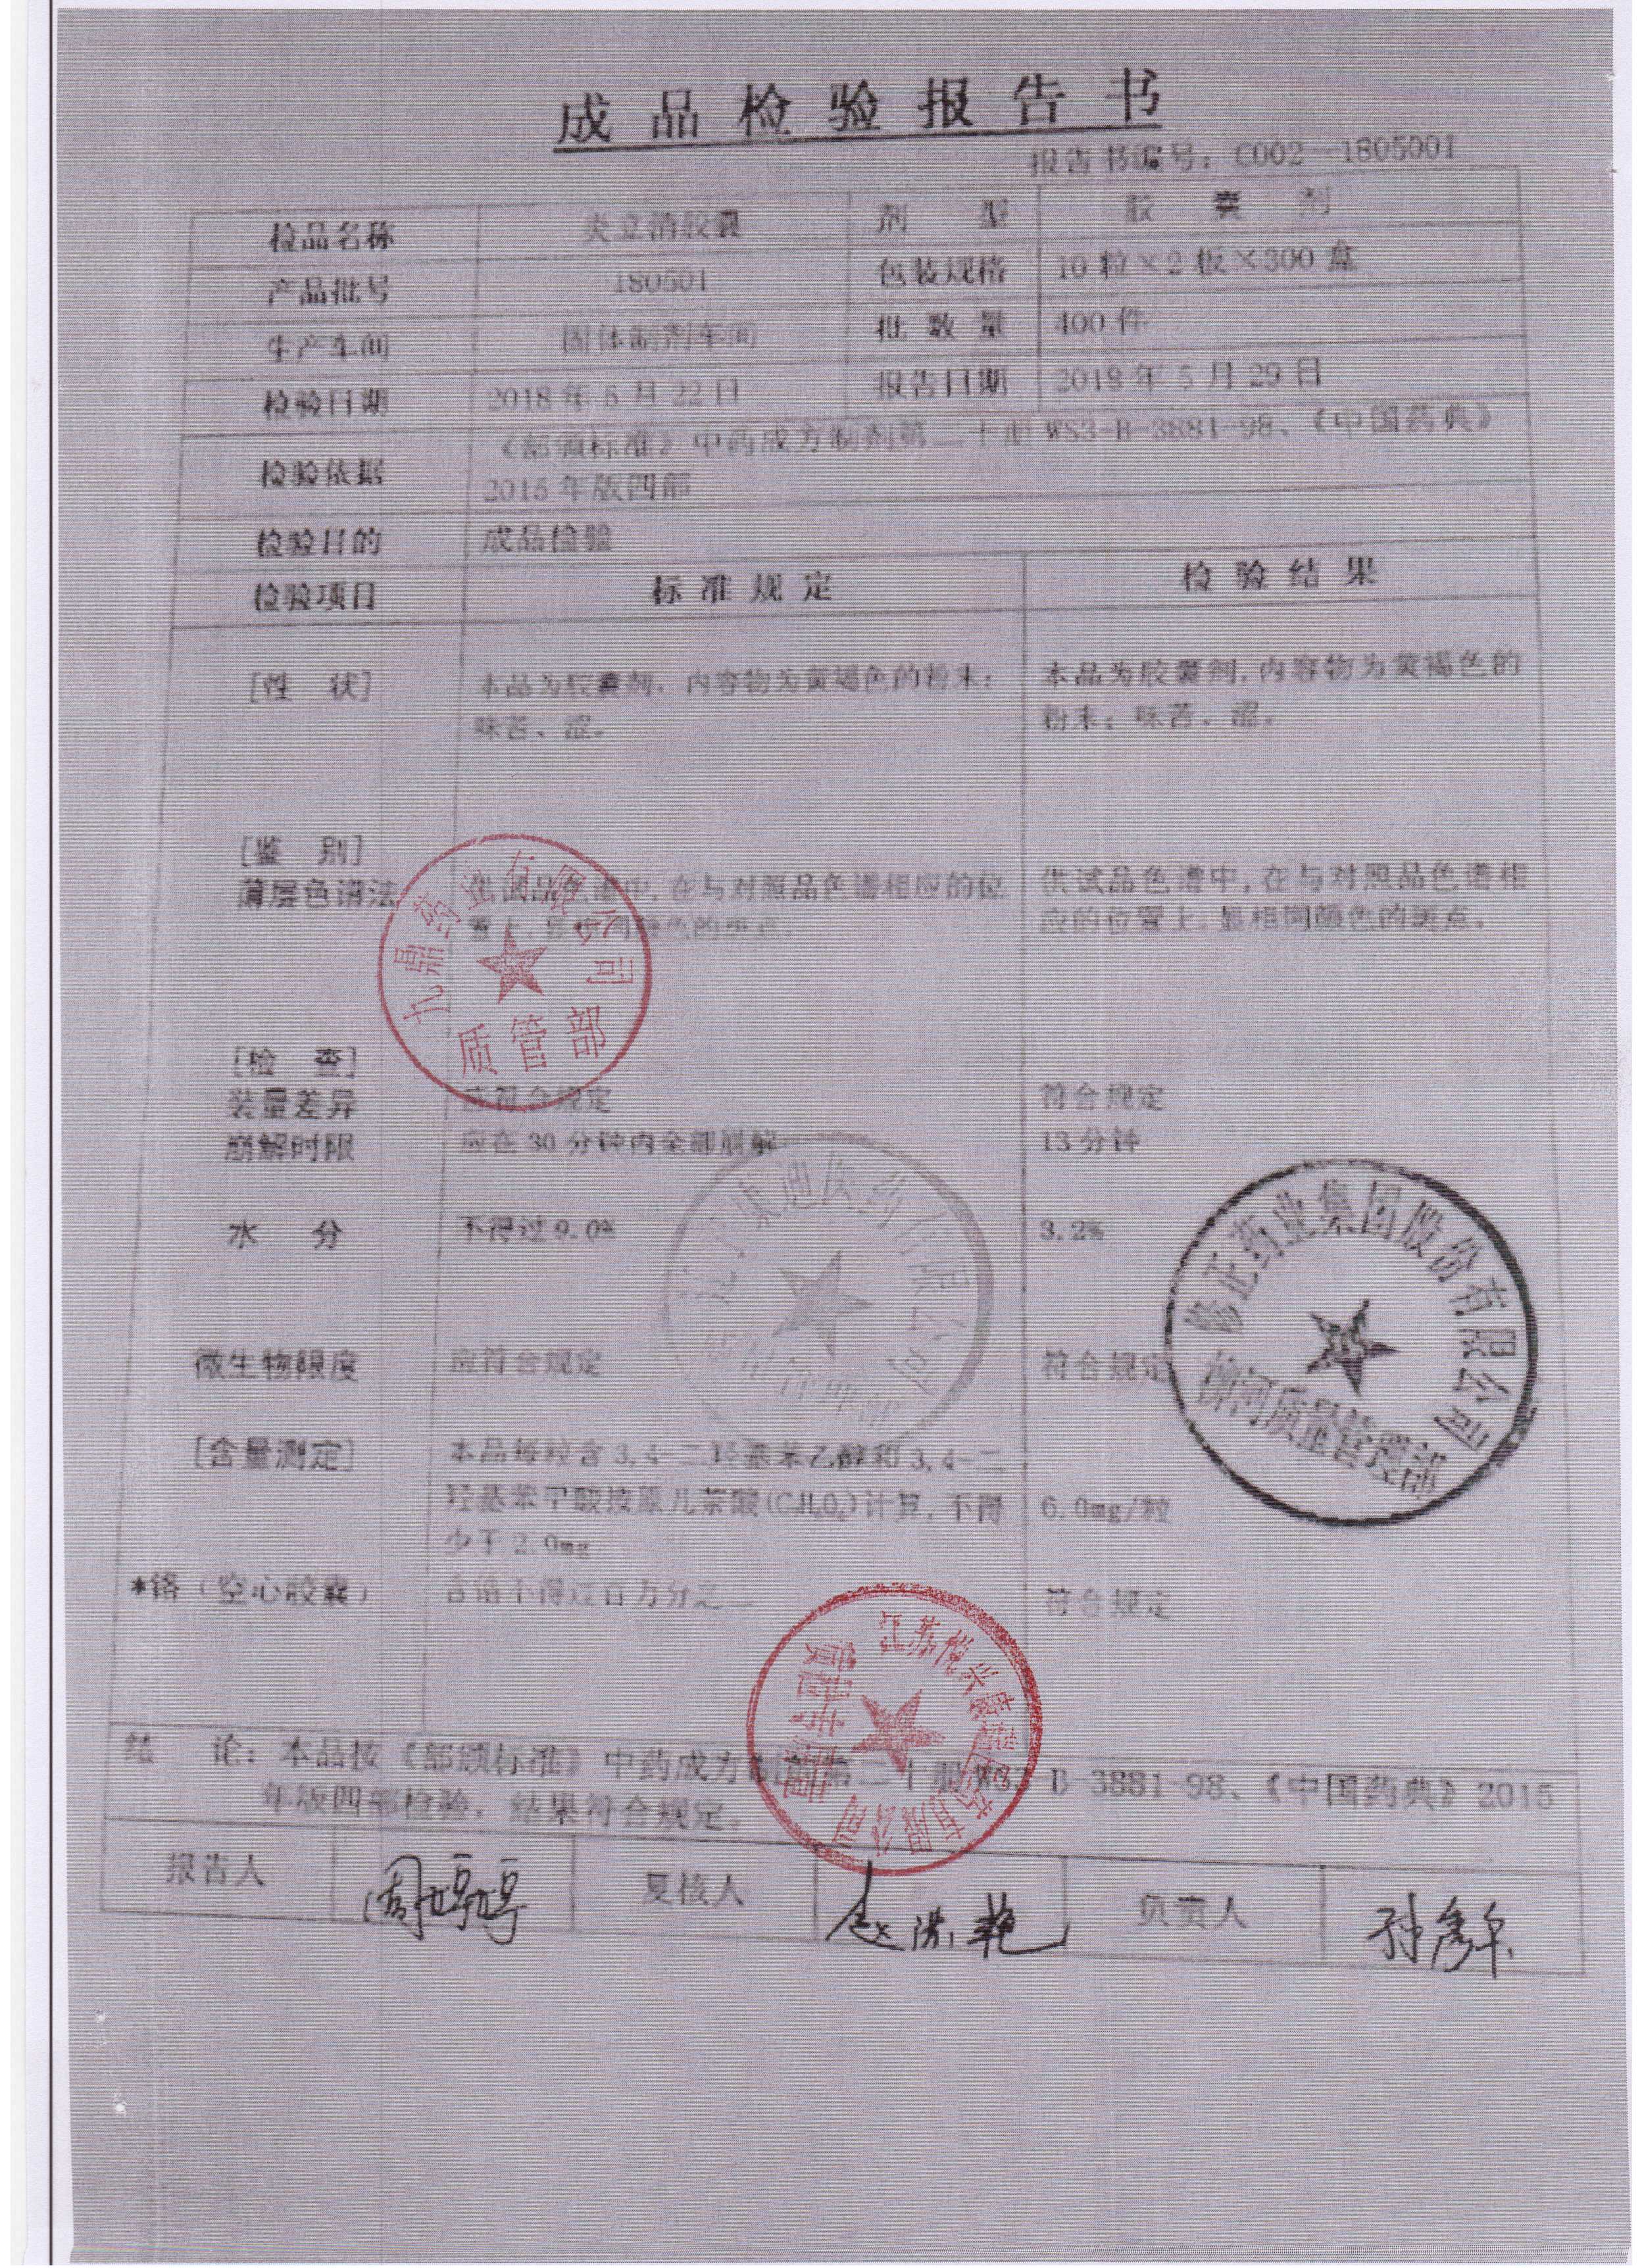 成品检验报告书
报告书编号：C002-1805001
检品名称 炎立消胶囊 剂 型 胶 囊 剂
产品批号 180501 包装规格 10粒×2板×300盒
生产车间 固体制剂车间 批 数 量 400件
检验日期 2018年5月22日 报告日期 2018年5月29日
检验依据 《部颁标准》中药成方制剂第二十册WS3-B-3881-98、《中国药典》
2015年版四部
检验目的 成品检验
检验项目 标准规定 检验结果
[性 状] 本品为胶囊剂，内容物为黄褐色的粉末； 本品为胶囊剂，内容物为黄褐色的
味苦、涩。 粉末；味苦、涩。
[鉴 别]
薄层色谱法 供试品色谱中，在与对照品色谱相应的位 供试品色谱中，在与对照品色谱相
置上，显相同颜色的斑点。 应的位置上，显相同颜色的斑点。
九鼎药业有限公司
质管部
[检 查]
装量差异 应符合规定 符合规定
崩解时限 应在30分钟内全部崩解 13分钟
水 分 不得过9.0% 3.2%
康迪医药有限公司
质量管理部
修正药业集团股份有限公司
柳河质量管理部
微生物限度 应符合规定 符合规定
[含量测定] 本品每粒含3,4-二羟基苯乙醇和3,4-二
羟基苯甲酸按原儿茶酸(C₇H₆O₄)计算，不得 6.0mg/粒
少于2.0mg
*铬（空心胶囊） 含铬不得过百万分之二 符合规定
江苏悦兴康瑞医药有限公司
质检专用章
结 论：本品按《部颁标准》中药成方制剂第二十册WS3-B-3881-98、《中国药典》2015
年版四部检验，结果符合规定。
报告人 周婷婷 复核人 赵洪艳 负责人